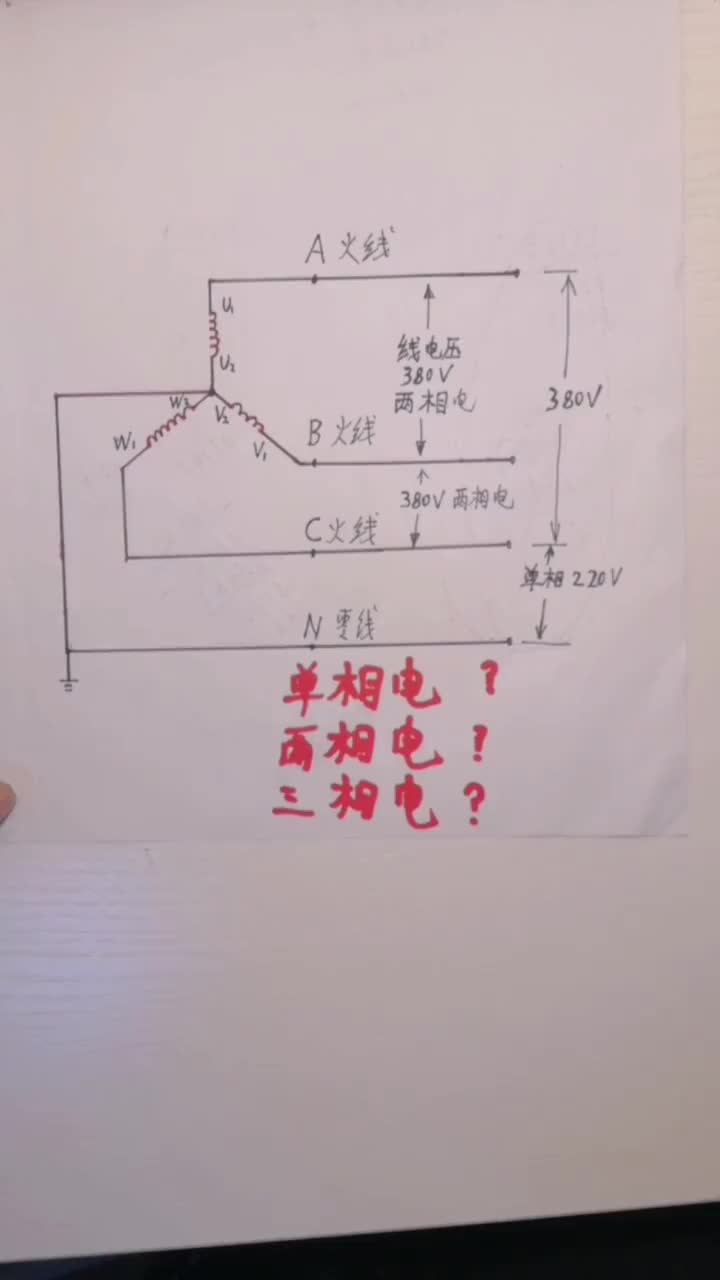 A 火线
U₁
线电压
380V
两相电
U₂
380V
W₂
V₂
W₁
V₁
B 火线
380V 两相电
C 火线
单相 220V
N 零线
单相电 ?
两相电 ?
三相电 ?